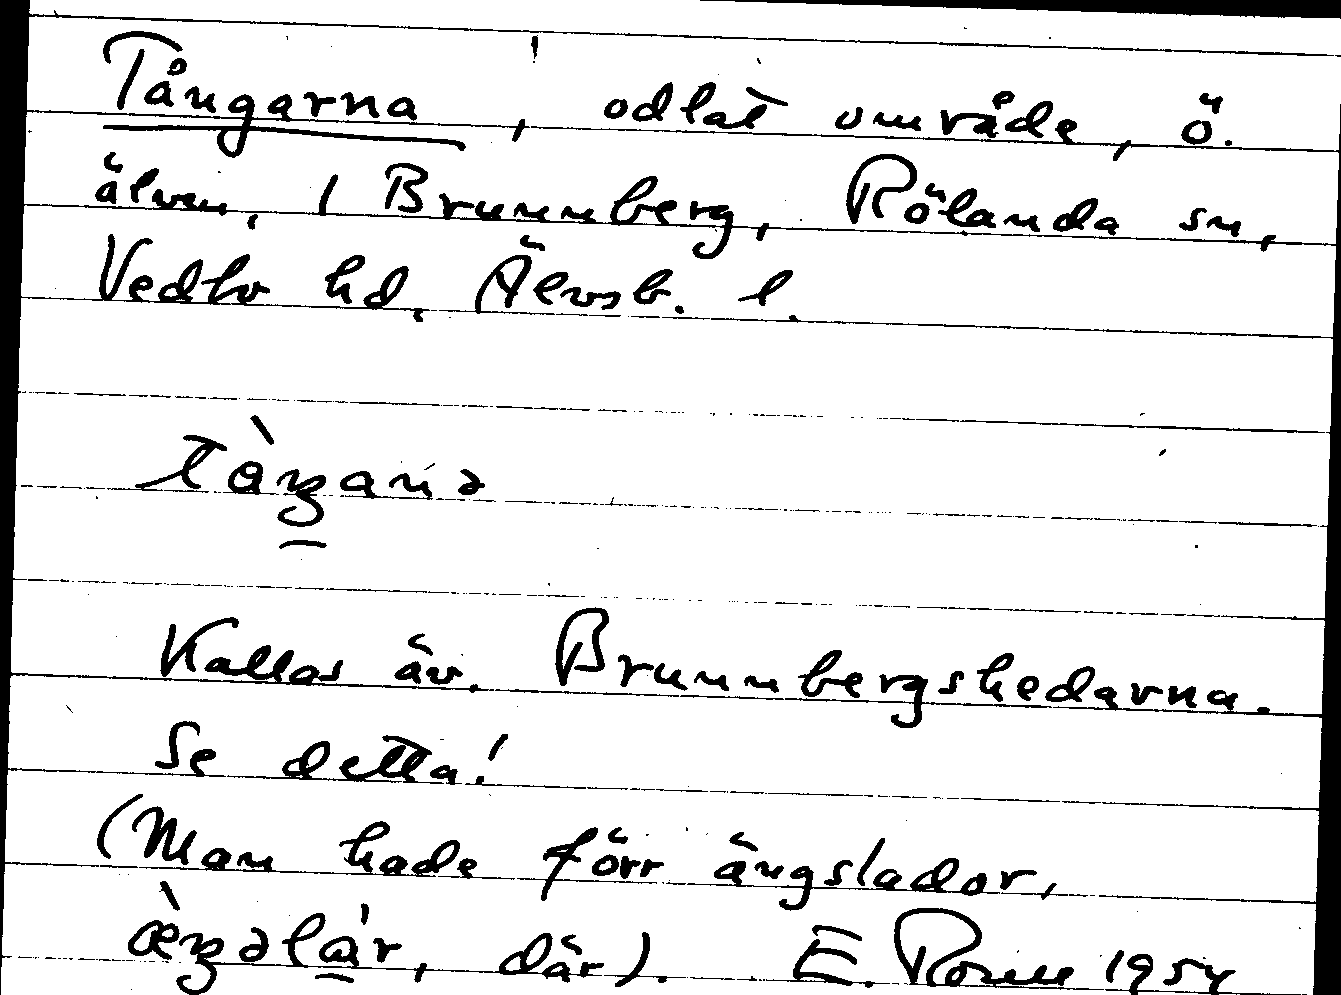 Tångarna, odlat område, ö.
älven, i Brunnberg, Rölanda sn,
Vedbo hd, Älvsb. l.
tå̀ŋana
Kallas äv. Brunnbergshedarna.
Se detta!
(Man hade förr ängslador,
æ̀ŋəlár, där). E. Rosell 1954